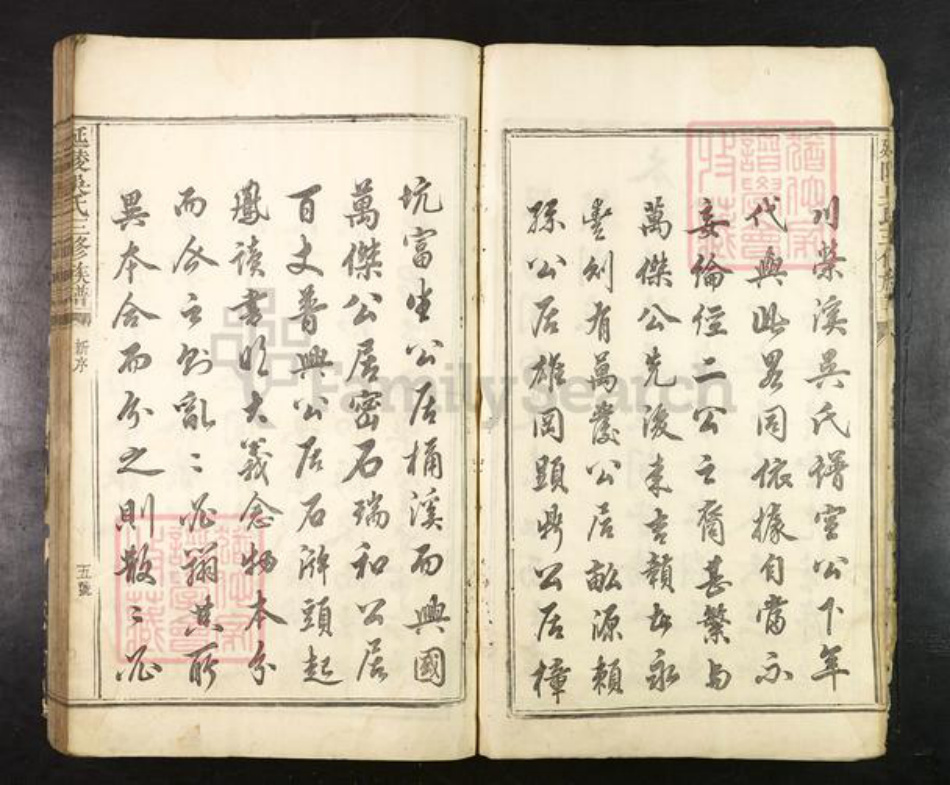 川柴溪吳氏譜宣公下年
代與此畧同依據自當不
妄倫俓二公之裔甚繁與
萬傑公先後來吉贛者永
豐則有萬發公居畝源贛
孫公居雄岡顯鼎公居樟
坑富生公居桶溪而興國
萬傑公居密石瑞和公居
百丈普興公居石漈頭起
鳳讀書明大義念物本分
而合之則亂亂必溯其所
異本合而分之則散散必
延陵吳氏三修族譜
新序
五號
FamilySearch